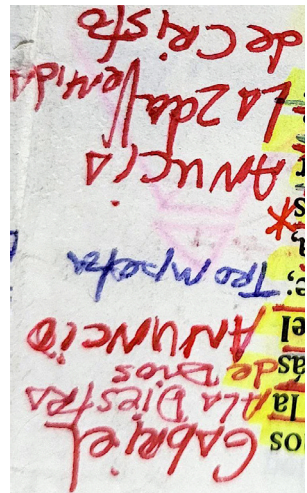 os Gabriel
la A LA DIESTRA
ás de Dios
el ANUNCIO
e; Trompeta
ANUCIA
La 2da Venida
de Cristo